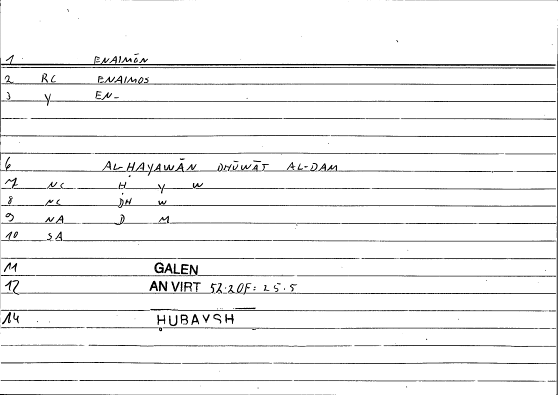 1 ENAIMŌN
2 RC ENAIMOS
3 Y EN-
6 AL-ḤAYAWĀN DHŪWĀT AL-DAM
7 NC Ḥ Y W
8 NC DH W
9 NA D M
10 SA
11 GALEN
12 AN VIRT 52.20F = 25.5
14 ḤUBAYSH